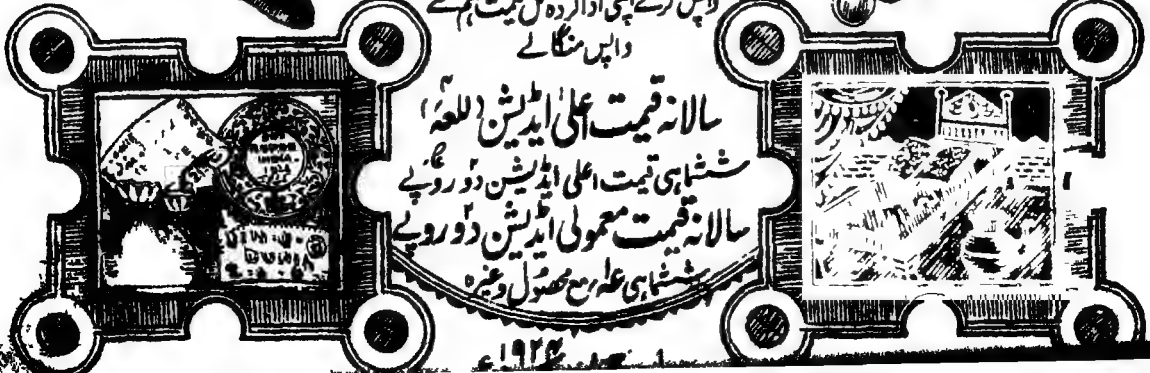 واپس کرکے اپنی ادا کردہ کل قیمت ہم سے
واپس منگالے
سالانہ قیمت اعلیٰ ایڈیشن (للعہ)
ششماہی قیمت اعلیٰ ایڈیشن دو روپے
سالانہ قیمت معمولی ایڈیشن دو روپے
ششماہی عہ مع محصول وغیرہ
RUPEE
INDIA